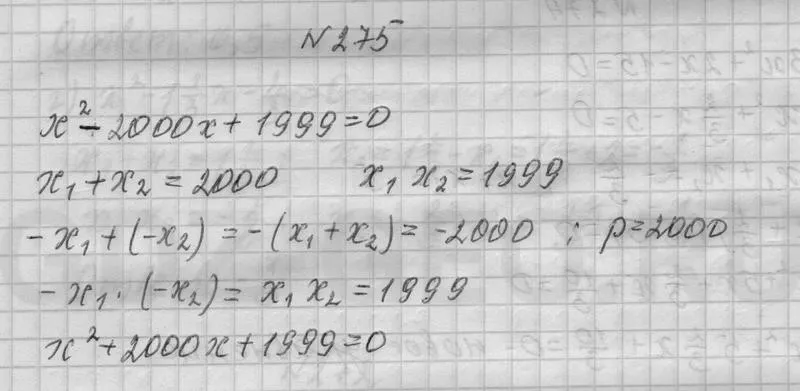 N275
x² - 2000x + 1999 = 0
x₁ + x₂ = 2000 x₁ x₂ = 1999
- x₁ + (-x₂) = -(x₁ + x₂) = -2000 ; p = 2000
- x₁ · (-x₂) = x₁ x₂ = 1999
x² + 2000x + 1999 = 0